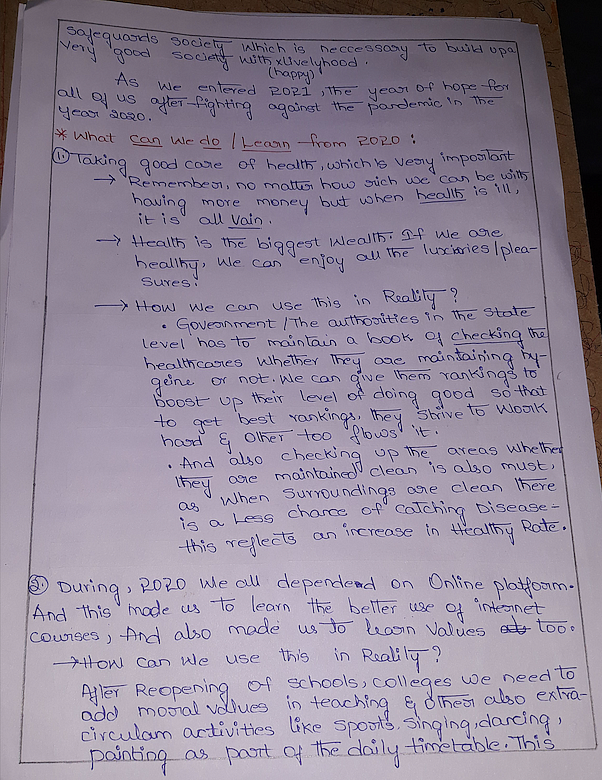 safeguards society which is neccessary to build up a
very good society with xlivelyhood.
(happy)
As we entered 2021, the year of hope for
all of us after fighting against the pandemic in the
year 2020.
* What can we do / Learn from 2020 :
1. Taking good care of health, which is very important
→ Remember, no matter how rich we can be with
having more money but when health is ill,
it is all vain.
→ Health is the biggest wealth. If we are
healthy, we can enjoy all the luxiories/plea-
sures.
→ How we can use this in Reality ?
• Government / The authorities in the state
level has to maintain a book of checking the
healthcares whether they are maintaining hy-
geine or not. We can give them rankings to
boost up their level of doing good so that
to get best rankings, they strive to work
hard & other too flows it.
• And also checking up the areas whether
they are maintained clean is also must,
as when surroundings are clean there
is a Less chance of catching Disease-
this reflects an increase in Healthy Rate.
2. During, 2020 we all depended on Online platform.
And this made us to learn the better use of internet
courses, And also made us to learn values too.
→ How can we use this in Reality ?
After Reopening of schools, colleges we need to
add moral values in teaching & other also extra-
circulam activities like sports, singing, dancing,
painting as part of the daily timetable. This